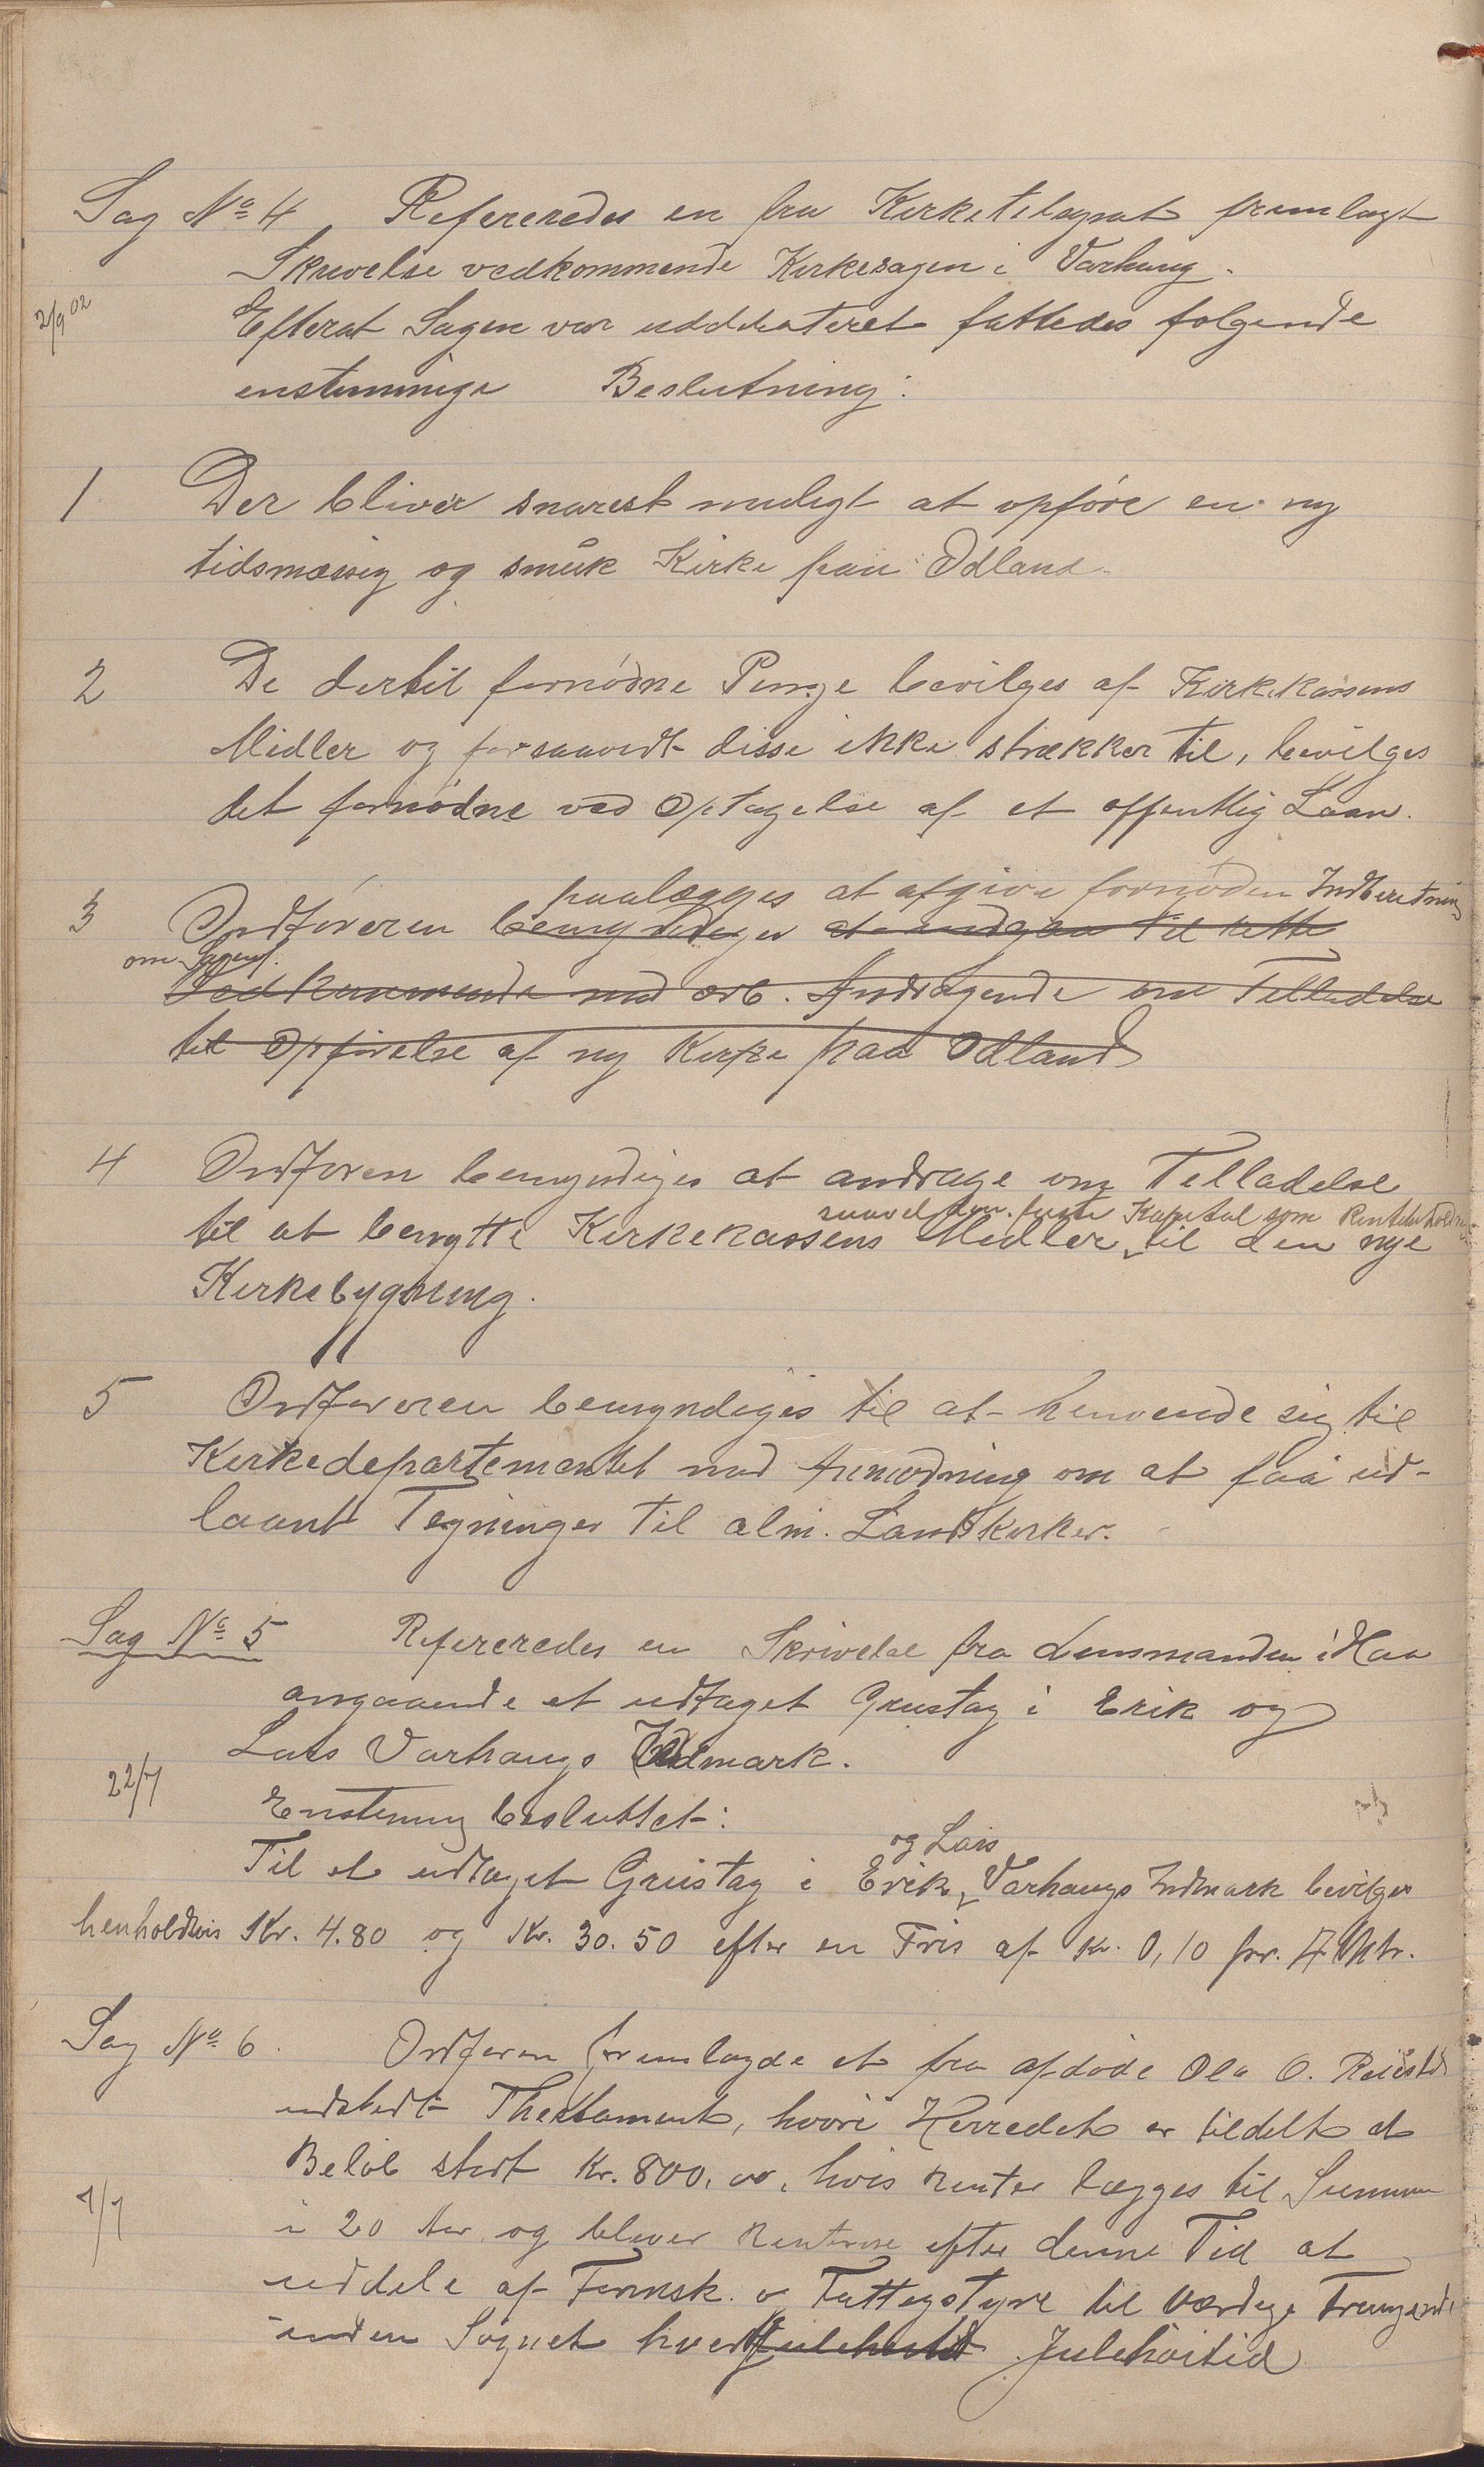 Sag No 4 Refereredes en fra Kirketilsynet fremlagt
Skrivelse vedkommende Kirkesagen i Varhaug.
2/9 02
Efterat Sagen var uddebateret fattedes følgende
enstemmige Beslutning:
1 Der bliver snarest muligt at opføre en ny
tidsmæssig og smuk Kirke paa Odland.
2 De dertil fornødne Penge bevilges af Kirkekassens
Midler og forsaavidt disse ikke strækker til, bevilges
det fornødne ved Optagelse af et offentlig Laan.
paalægges at afgive fornøden Indberetning
3 Ordføreren bemyndiges at indgaa til rette
om Sagen.
Vedkommende med ærb. Andragende om Tilladelse
til Opførelse af ny Kirke paa Odland
4 Ordføreren bemyndiges at andrage om Tilladelse
saavel den faste Kapital som
til at benytte Kirkekassens Midler til den nye
Kirkebygning.
5 Ordføreren bemyndiges til at henvende sig til
Kirkedepartementet med Anmodning om at faa ud-
laant Tegninger til alm. Landskirker.
Sag No 5 Refereredes en Skrivelse fra Lensmanden i Haa
angaaende et udtaget Grustag i Erik og
Lars Varhaugs Indmark.
22/7
Enstemmig besluttet:
og Lars
Til et udtaget Grustag i Erik Varhaugs Indmark bevilges
henholdsvis Kr. 4.80 og Kr. 30.50 efter en Pris af Kr. 0,10 pr. Mtr.
Sag No 6. Ordføreren fremlagde et fra afdøde Ole O.
udstedt Thestament, hvori Herredet er tildelt et
Beløb stort Kr. 800.00, hvis Renter lægges til Summen
i 20 Aar og bliver Renterne efter denne Tid at
7/7
uddele af Formsk. og Fattigstyre til værdige Trængende
inden Sognet hver Julehøitid